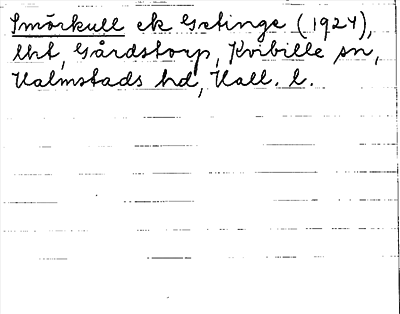 Smörkull ek Getinge (1924),
lht, Gårdstorp, Kvibille sn,
Halmstads hd, Hall. l.